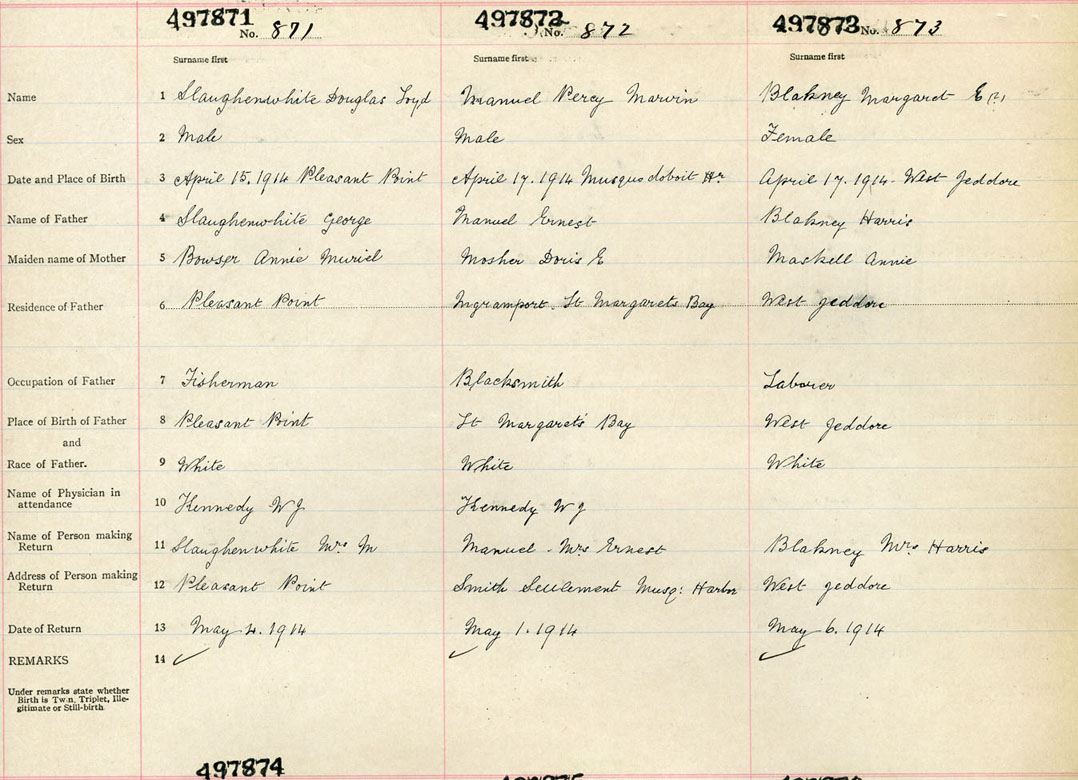 497871 497872 497873
No. 871 No. 872 No. 873
Surname first Surname first Surname first
Name 1 Slaughenwhite Douglas Loyd Manuel Percy Marvin Blakney Margaret E
Sex 2 Male Male Female
Date and Place of Birth 3 April 15. 1914 Pleasant Point April 17. 1914 Musquodoboit Hr April 17. 1914 - West Jeddore
Name of Father 4 Slaughenwhite George Manuel Ernest Blakney Harris
Maiden name of Mother 5 Bowser Annie Muriel Mosher Doris E Maskell Annie
Residence of Father 6 Pleasant Point Ingramport. St Margarets Bay West Jeddore
Occupation of Father 7 Fisherman Blacksmith Laborer
Place of Birth of Father 8 Pleasant Point St Margaret's Bay West Jeddore
and
Race of Father. 9 White White White
Name of Physician in
attendance 10 Kennedy W J Kennedy W J
Name of Person making
Return 11 Slaughenwhite Mrs M Manuel - Mrs Ernest Blakney Mrs Harris
Address of Person making
Return 12 Pleasant Point Smith Settlement Musq: Harbr West Jeddore
Date of Return 13 May 4. 1914 May 1. 1914 May 6. 1914
REMARKS 14
Under remarks state whether
Birth is Twin, Triplet, Ille-
gitimate or Still-birth
497874